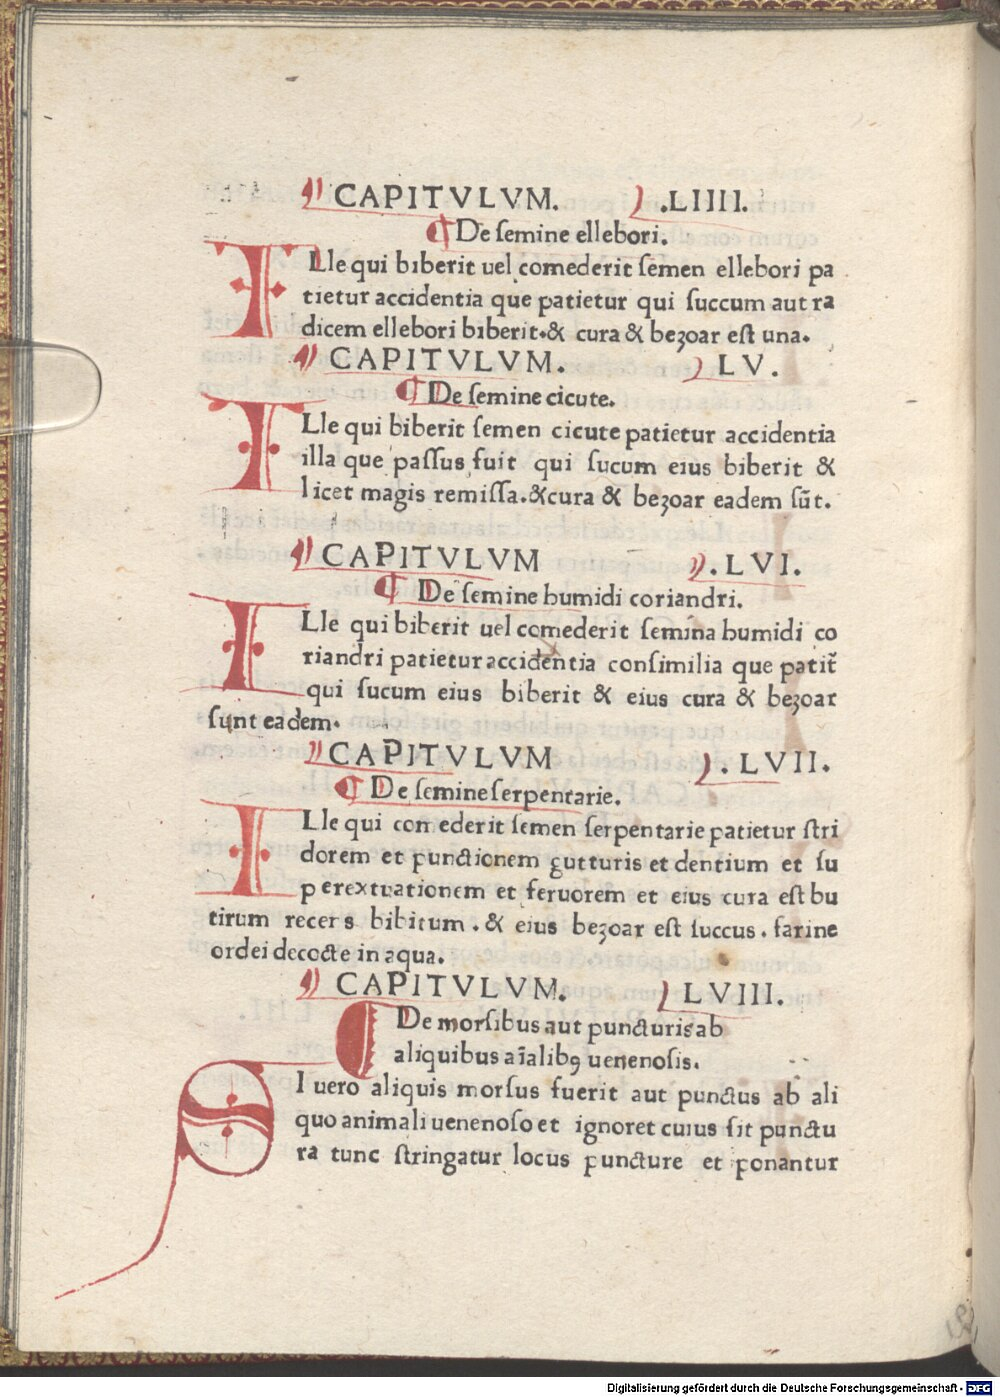 CAPITVLVM. .LIIII.
De semine ellebori.
ILle qui biberit uel comederit semen ellebori pa
tietur accidentia que patietur qui succum aut ra
dicem ellebori biberit.& cura & bezoar est una.
CAPITVLVM. LV.
De semine cicute.
ILle qui biberit semen cicute patietur accidentia
illa que passus fuit qui sucum eius biberit &
licet magis remissa.&cura & bezoar eadem sūt.
CAPITVLVM .LVI.
De semine humidi coriandri.
ILle qui biberit uel comederit semina humidi co
riandri patietur accidentia consimilia que patit̃
qui sucum eius biberit & eius cura & bezoar
sunt eadem.
CAPITVLVM .LVII.
De semine serpentarie.
ILle qui comederit semen serpentarie patietur stri
dorem et punctionem gutturis et dentium et su
perextuationem et feruorem et eius cura est bu
tirum recens bibitum . & eius bezoar est succus . farine
ordei decocte in aqua.
CAPITVLVM. LVIII.
De morsibus aut puncturis ab
aliquibus aīalibꝯ uenenosis.
SI uero aliquis morsus fuerit aut punctus ab ali
quo animali uenenoso et ignoret cuius sit punctu
ra tunc stringatur locus puncture et ponantur
Digitalisierung gefördert durch die Deutsche Forschungsgemeinschaft - DFG